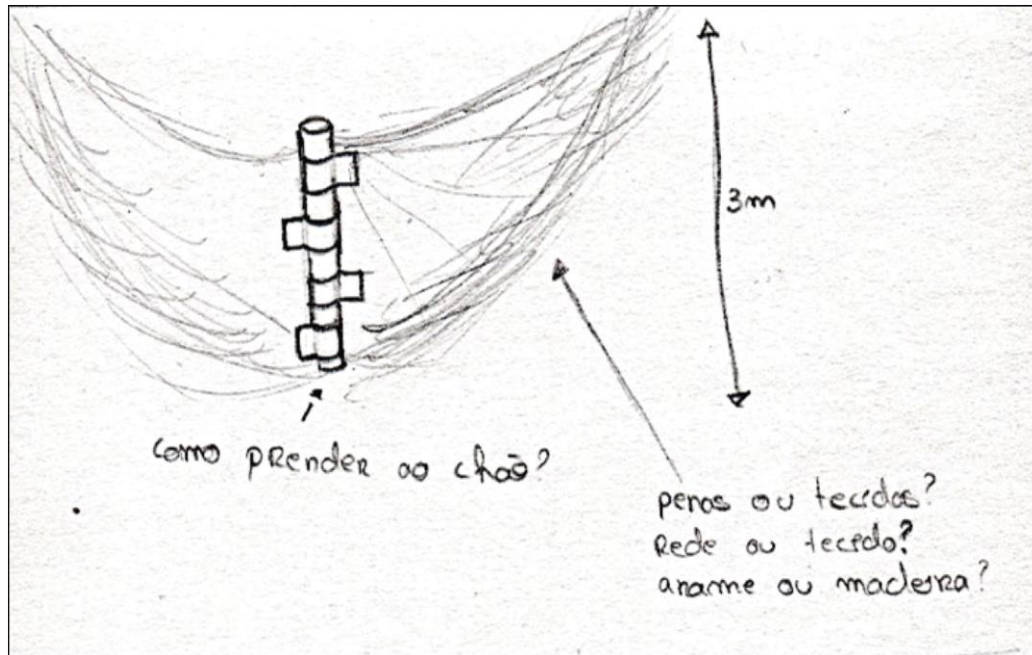 3m
como prender ao chão?
penas ou tecidos?
Rede ou tecido?
arame ou madeira?